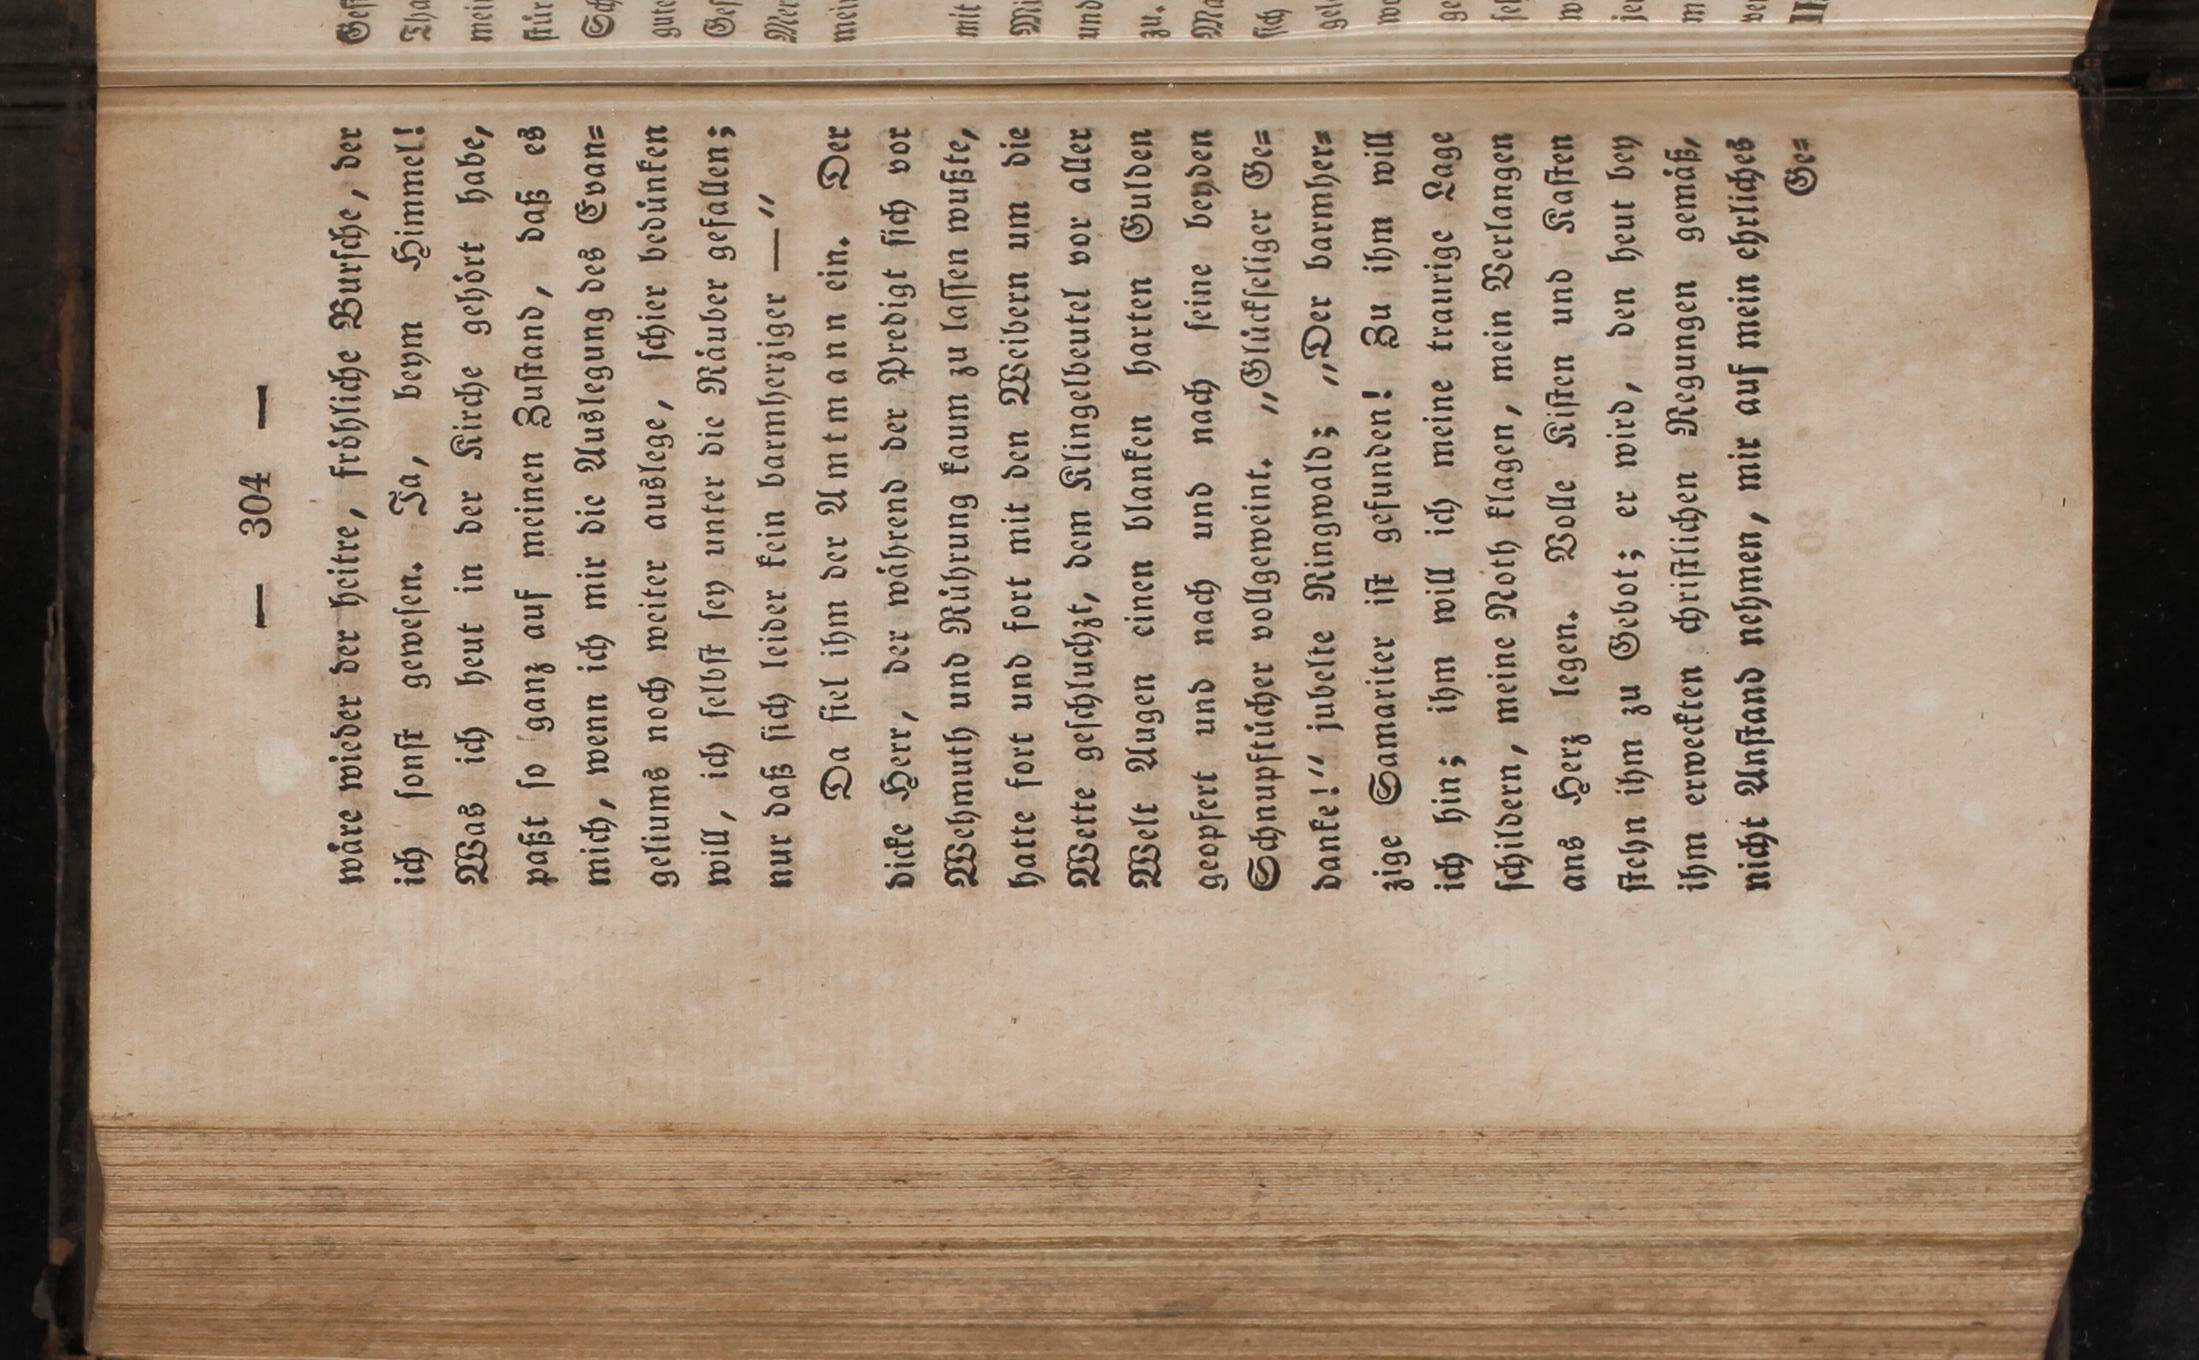 — 304 —
wäre wieder der heitre, fröhliche Bursche, der
ich sonst gewesen. Ja, beym Himmel!
Was ich heut in der Kirche gehört habe,
paßt so ganz auf meinen Zustand, daß es
mich, wenn ich mir die Auslegung des Evan=
geliums noch weiter auslege, schier bedünken
will, ich selbst sey unter die Räuber gefallen;
nur daß sich leider kein barmherziger —“
Da fiel ihm der Amtmann ein. Der
dicke Herr, der während der Predigt sich vor
Wehmuth und Rührung kaum zu lassen wußte,
hatte fort und fort mit den Weibern um die
Wette geschluchzt, dem Klingelbeutel vor aller
Welt Augen einen blanken harten Gulden
geopfert und nach und nach seine beyden
Schnupftücher vollgeweint. „Glückseliger Ge=
danke!“ jubelte Ringwald; „Der barmher=
zige Samariter ist gefunden! Zu ihm will
ich hin; ihm will ich meine traurige Lage
schildern, meine Noth klagen, mein Verlangen
ans Herz legen. Volle Kisten und Kasten
stehn ihm zu Gebot; er wird, den heut bey
ihm erweckten christlichen Regungen gemäß,
nicht Anstand nehmen, mir auf mein ehrliches
Ge=